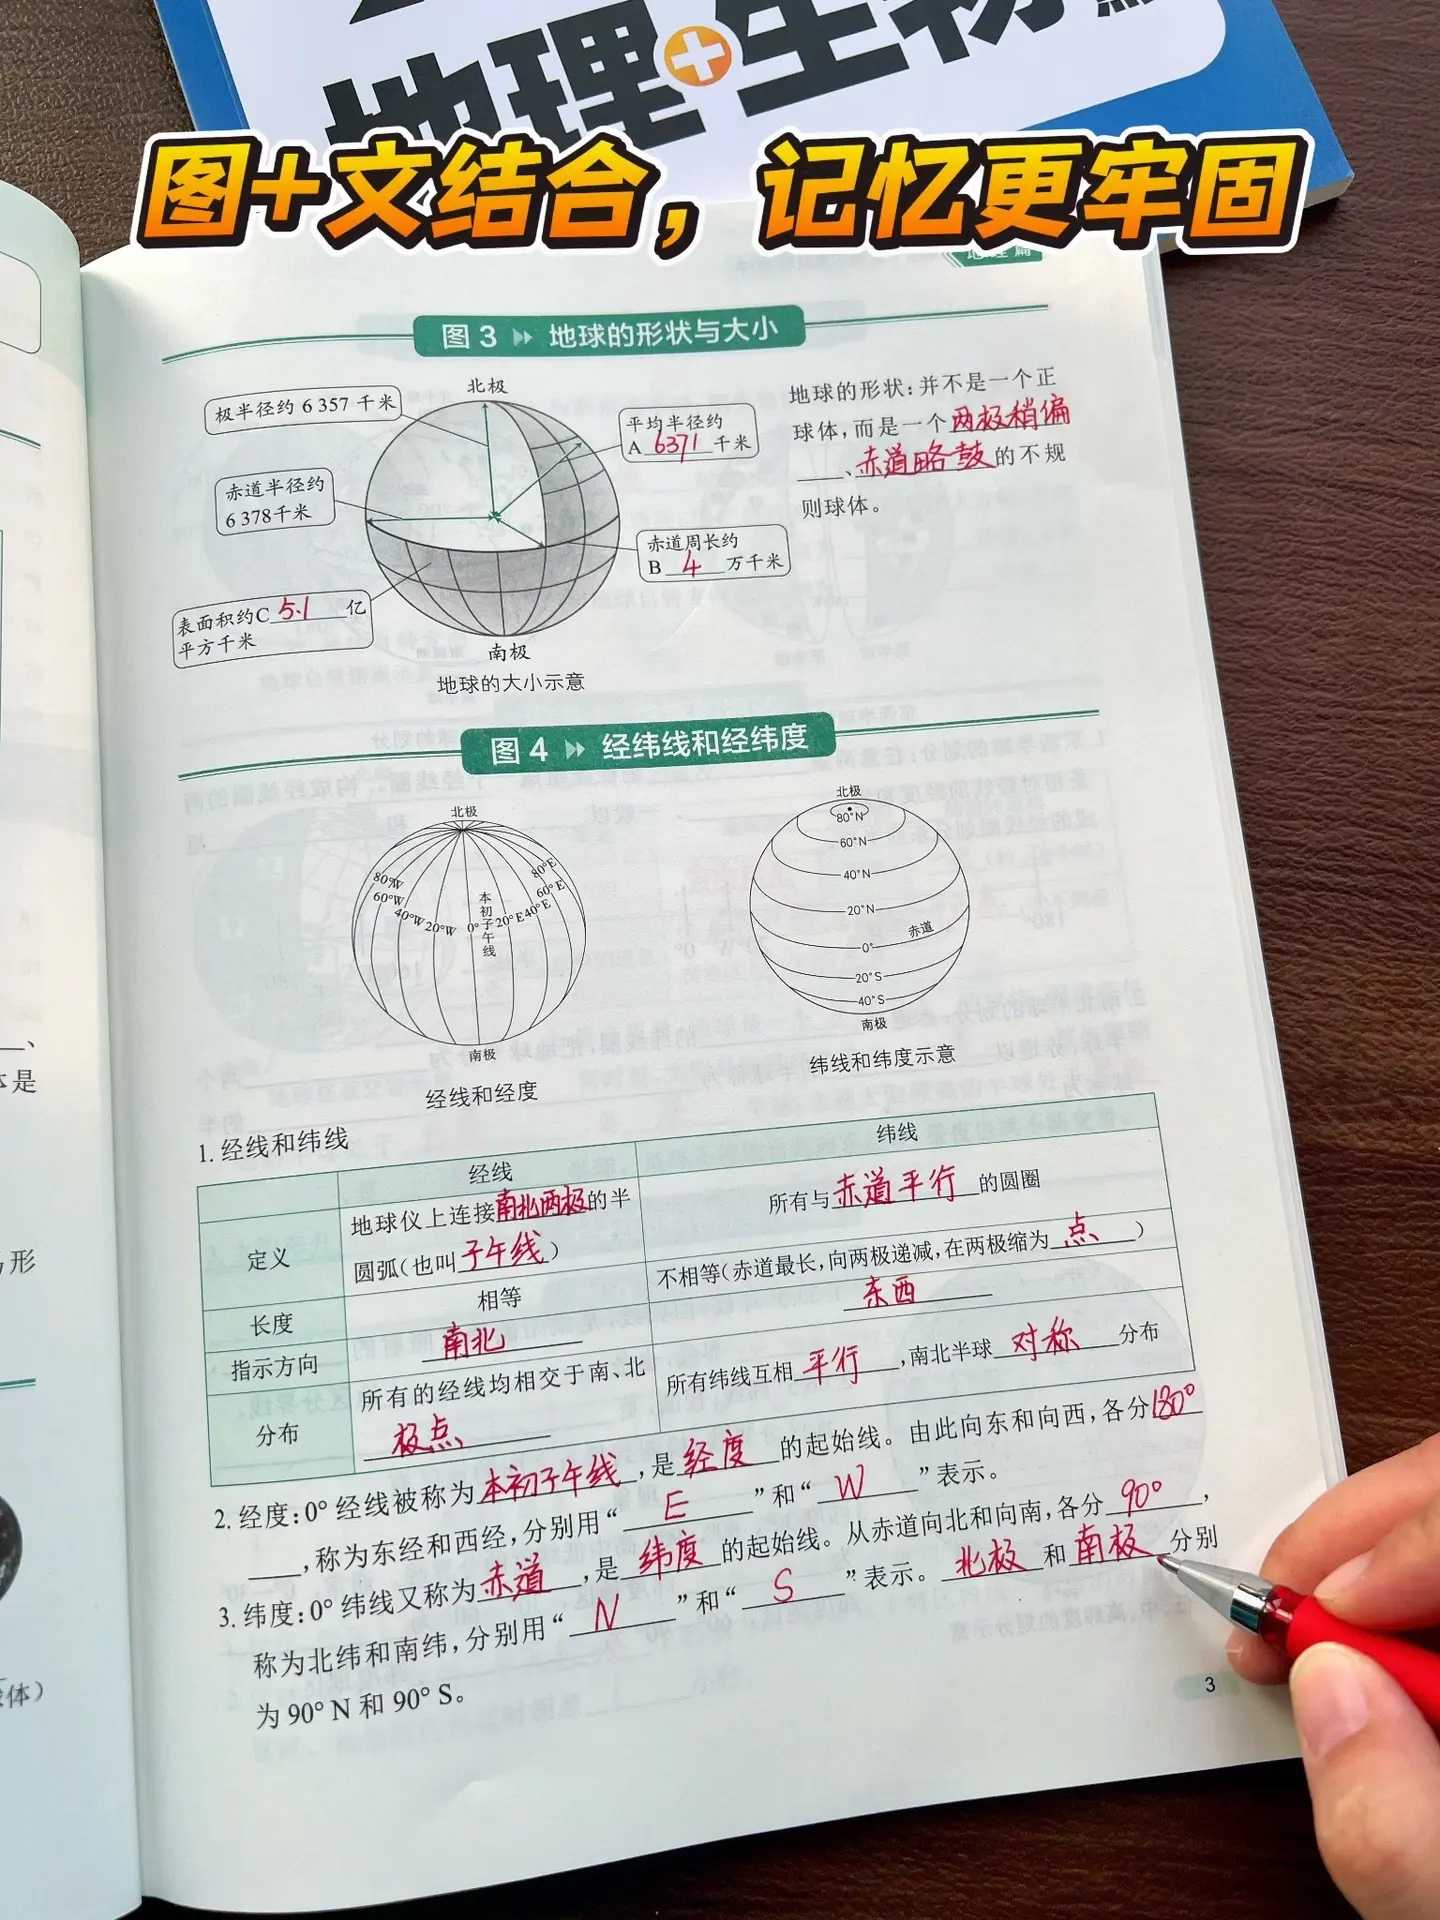 地理+生物
图+文结合，记忆更牢固
地理篇
图 3 地球的形状与大小
北极
极半径约 6 357 千米
平均半径约
A 6371 千米
赤道半径约
6 378千米
赤道周长约
B 4 万千米
表面积约C 5.1 亿
平方千米
南极
地球的大小示意
地球的形状：并不是一个正
球体，而是一个两极稍偏
、赤道略鼓的不规
则球体。
图 4 经纬线和经纬度
北极
80°W
60°W
40°W
20°W
0°
20°E
40°E
60°E
80°E
本初子午线
南极
经线和经度
北极
80°N
60°N
40°N
20°N
赤道
0°
20°S
40°S
南极
纬线和纬度示意
1. 经线和纬线
经线 纬线
定义
地球仪上连接南北两极的半
圆弧（也叫子午线）
所有与赤道平行的圆圈
长度
相等
不相等（赤道最长，向两极递减，在两极缩为点）
指示方向
南北
东西
分布
所有的经线均相交于南、北
极点
所有纬线互相平行，南北半球对称分布
2. 经度：0° 经线被称为本初子午线，是经度的起始线。由此向东和向西，各分180°
，称为东经和西经，分别用“E”和“W”表示。
3. 纬度：0° 纬线又称为赤道，是纬度的起始线。从赤道向北和向南，各分90°，
称为北纬和南纬，分别用“N”和“S”表示。北极和南极分别
为 90° N 和 90° S。
3
、
体是
形
球体）